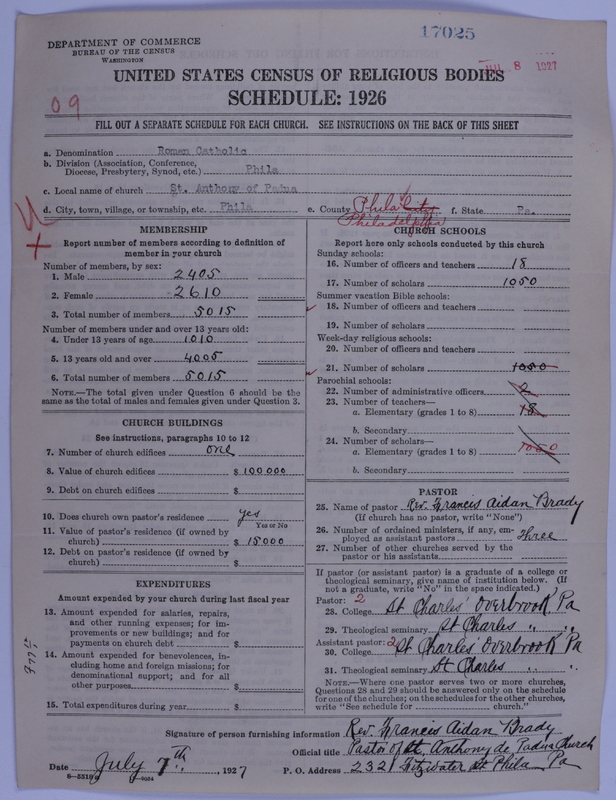 17025
DEPARTMENT OF COMMERCE
BUREAU OF THE CENSUS
WASHINGTON
8 1927
UNITED STATES CENSUS OF RELIGIOUS BODIES
SCHEDULE: 1926
09
FILL OUT A SEPARATE SCHEDULE FOR EACH CHURCH. SEE INSTRUCTIONS ON THE BACK OF THIS SHEET
a. Denomination Roman Catholic
b. Division (Association, Conference,
Diocese, Presbytery, Synod, etc.) Phila
c. Local name of church St. Anthony of Padua
d. City, town, village, or township, etc. Phila e. County Phila City f. State Pa.
Philadelphia
MEMBERSHIP
Report number of members according to definition of
member in your church
Number of members, by sex:
1. Male 2405
2. Female 2610
3. Total number of members 5015
Number of members under and over 13 years old:
4. Under 13 years of age 1010
5. 13 years old and over 4005
6. Total number of members 5015
NOTE.—The total given under Question 6 should be the
same as the total of males and females given under Question 3.
CHURCH BUILDINGS
See instructions, paragraphs 10 to 12
7. Number of church edifices one
8. Value of church edifices $ 100 000
9. Debt on church edifices $
10. Does church own pastor's residence yes
Yes or No
11. Value of pastor's residence (if owned by
church) $ 15000
12. Debt on pastor's residence (if owned by
church) $
EXPENDITURES
Amount expended by your church during last fiscal year
13. Amount expended for salaries, repairs,
and other running expenses; for im-
provements or new buildings; and for
payments on church debt $
14. Amount expended for benevolences, in-
cluding home and foreign missions; for
denominational support; and for all
other purposes $
15. Total expenditures during year $
CHURCH SCHOOLS
Report here only schools conducted by this church
Sunday schools:
16. Number of officers and teachers 18
17. Number of scholars 1050
Summer vacation Bible schools:
18. Number of officers and teachers
19. Number of scholars
Week-day religious schools:
20. Number of officers and teachers
21. Number of scholars 1050
Parochial schools:
22. Number of administrative officers 2
23. Number of teachers—
a. Elementary (grades 1 to 8) 18
b. Secondary
24. Number of scholars—
a. Elementary (grades 1 to 8) 1050
b. Secondary
PASTOR
25. Name of pastor Rev. Francis Aidan Brady
(If church has no pastor, write "None")
26. Number of ordained ministers, if any, em-
ployed as assistant pastors Three
27. Number of other churches served by the
pastor or his assistants
If pastor (or assistant pastor) is a graduate of a college or
theological seminary, give name of institution below. (If
not a graduate, write "No" in the space indicated.)
Pastor: 2
28. College St Charles' Overbrook Pa
29. Theological seminary St Charles " "
Assistant pastor: 2
30. College St Charles Overbrook Pa
31. Theological seminary St Charles " "
NOTE.—Where one pastor serves two or more churches,
Questions 28 and 29 should be answered only on the schedule
for one of the churches; on the schedules for the other churches,
write "See schedule for church."
Signature of person furnishing information Rev. Francis Aidan Brady
Official title Pastor of St. Anthony de Padua Church
Date July 7th, 1927 P. O. Address 2321 Fitzwater St Phila Pa